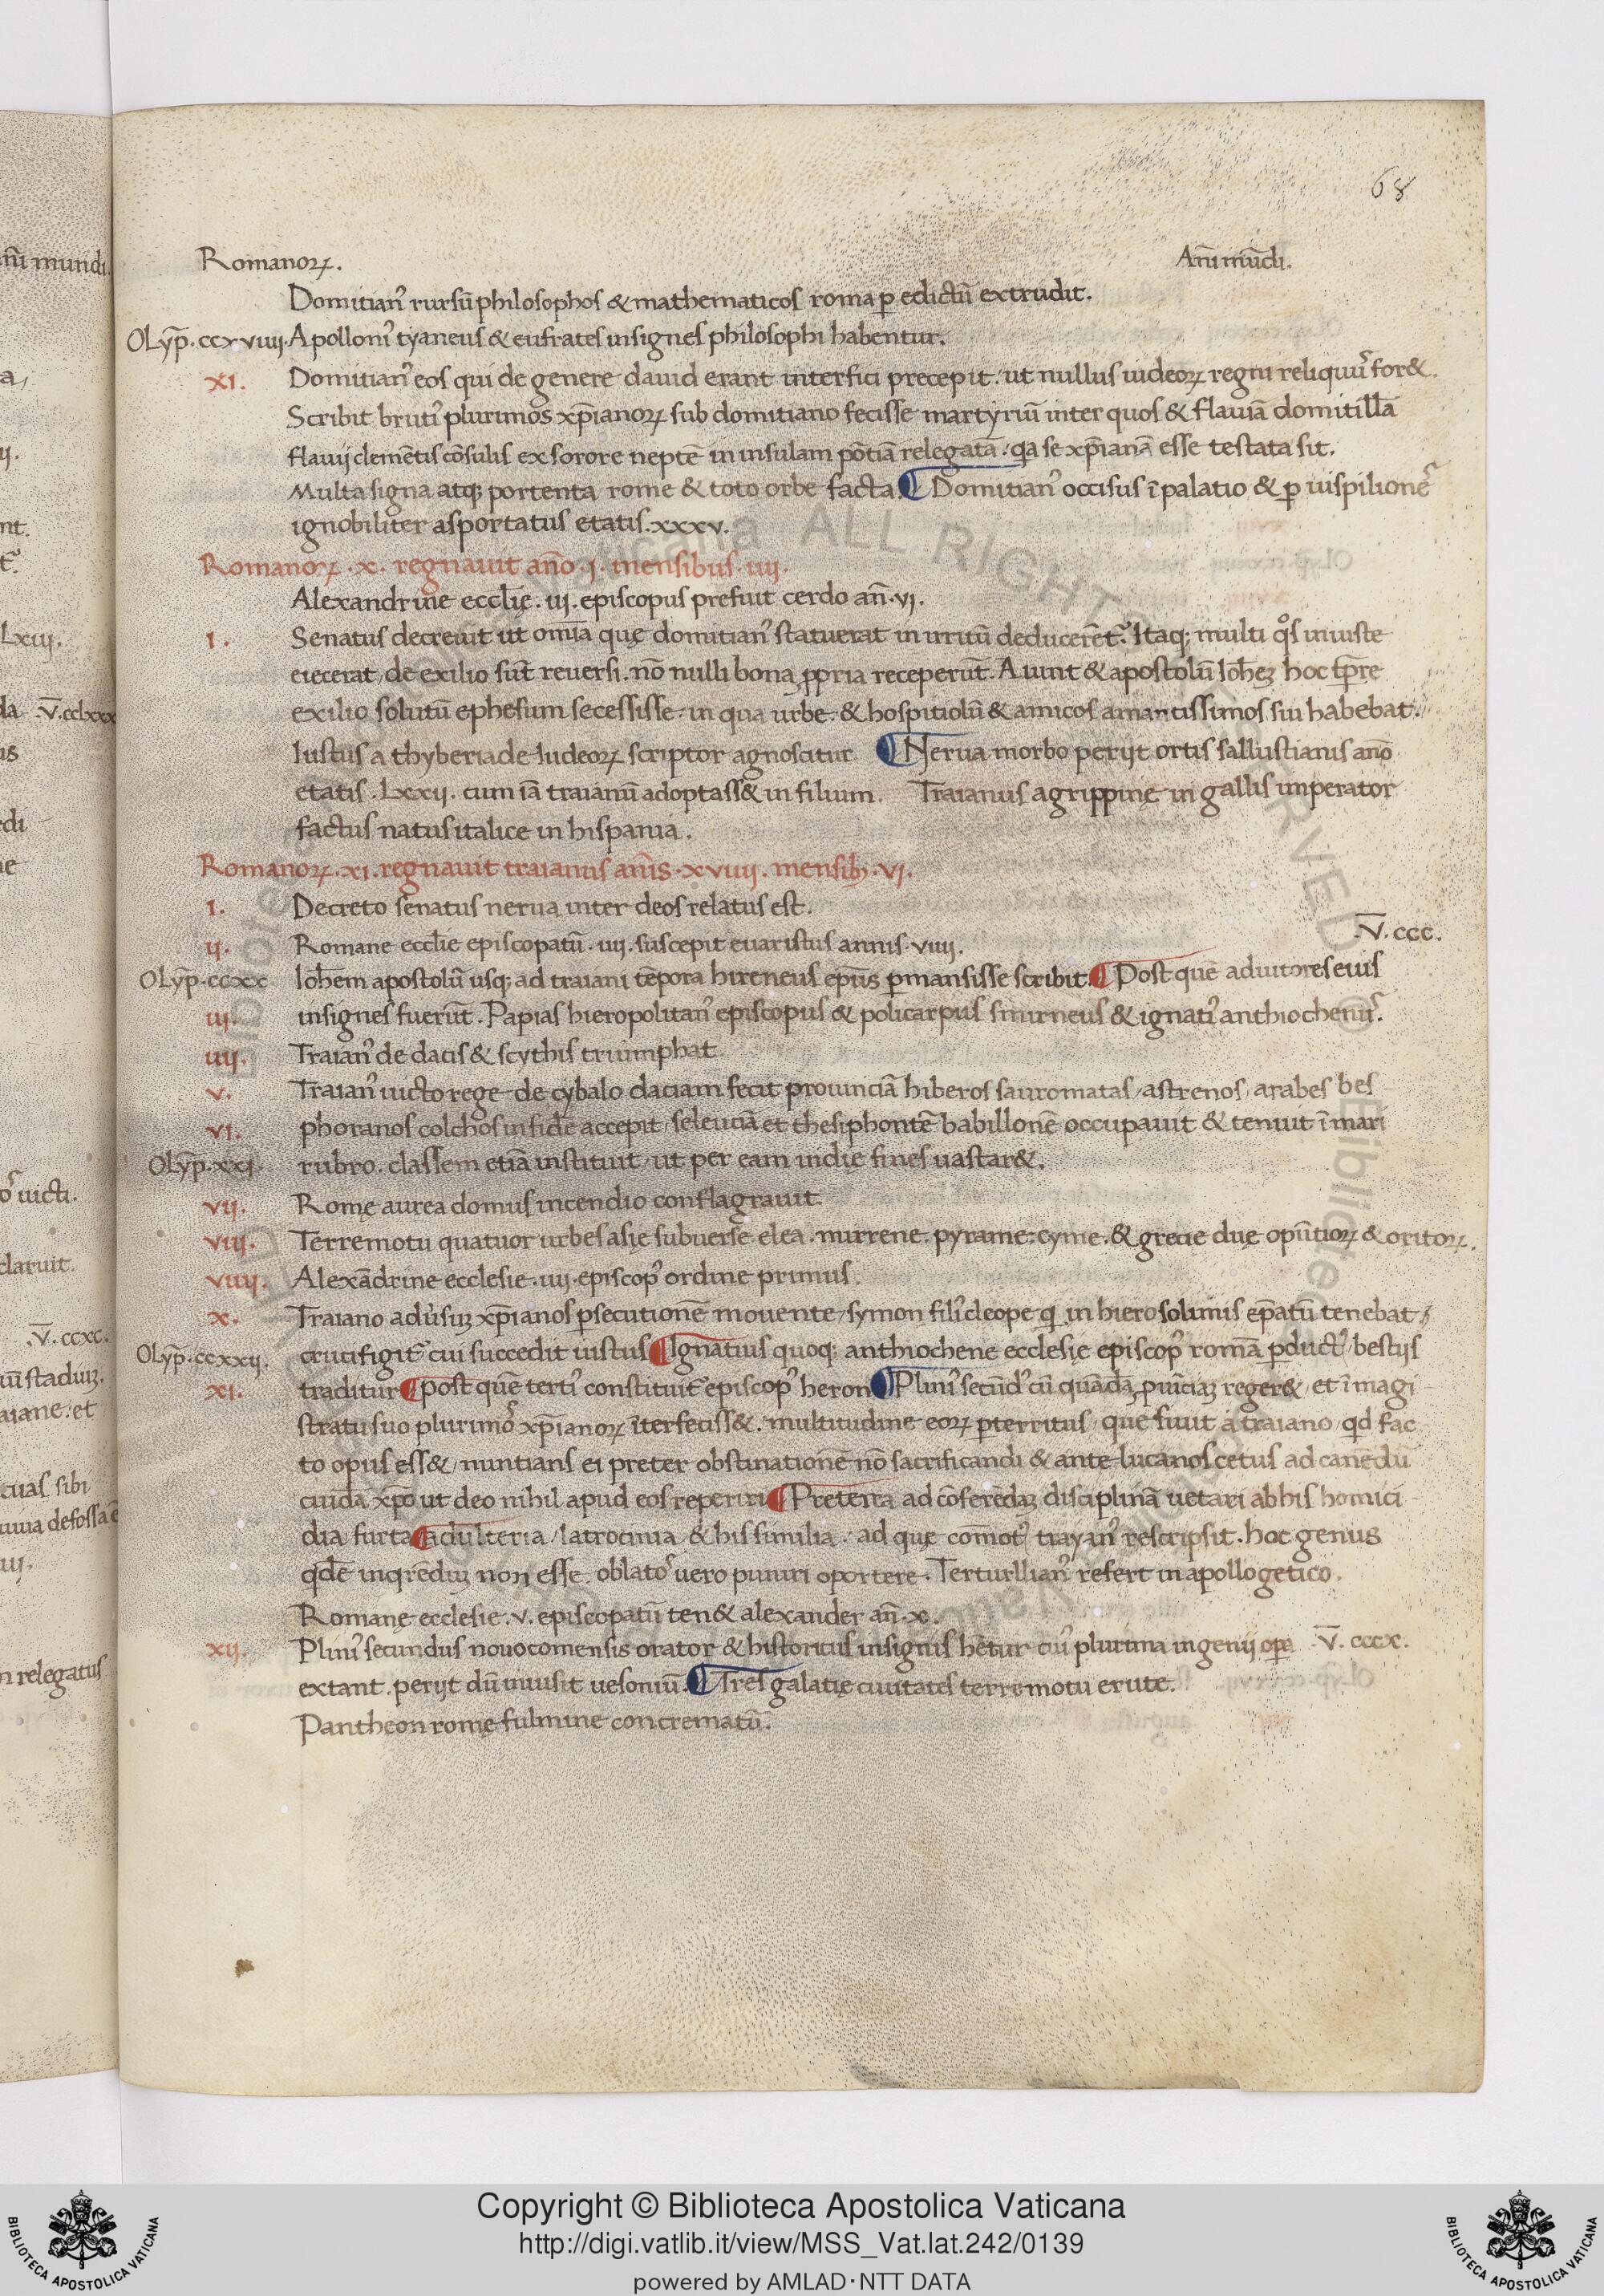 68
Romanoꝝ. Añi mũdi.
Domitianꝰ rursũ philosophos & mathematicos roma ꝑ edictũ extrudit.
OLyp̃.ccxviiij. Apollonꝰ tyaneus & eufrates insignes philosophi habentur.
xi. Domitianꝰ eos qui de genere dauid erant interfici precepit. ut nullus iudeoꝝ regni reliquuꝰ for&.
Scribit brutiꝰ plurimos xp̃ianoꝝ sub domitiano fecisse martyriũ inter quos & flauiã domitillã
flauij clemẽtis cõsulis ex sorore neptẽ in insulam põtiã relegatã. qa se xp̃ianã esse testata sit.
Multa signa atq; portenta rome & toto orbe facta. ¶ Domitianꝰ occisus ĩ palatio & ꝑ uispilionẽs
ignobiliter asportatus etatis.xxxv.
Romanoꝝ.x. regnauit año.j. mensibus.iiij.
Alexandrine eccl̃ię.iij.episcopus prefuit cerdo añ.vi.
i. Senatus decreuit ut om̃ia quę domitianꝰ statuerat in irritũ deducerẽt᷑. Itaq; multi qͦs iniuste
eiecerat, de exilio sũt reuersi. nõ nulli bona ꝓpria receperũt. Aiunt & apostolũ Ioh̃eꝫ hoc tp̃re
exilio solutũ ephesum secessisse. in qua urbe. & hospitiolũ & amicos amantissimos sui habebat.
Iustus a thyberiade iudeoꝝ scriptor agnoscitur ¶ Nerua morbo perijt ortis sallustianis año
etatis.Lxxij. cum iã traianũ adoptass& in filium. Traianus agrippinę in gallis imperator
factus natus italice in hispania.
Romanoꝝ.xi.regnauit traianus añis.xviiij.mensibꝫ.vi.
i. Decreto senatus nerua inter deos relatus est.
ij. Romane eccl̃ie episcopatũ.iiij.suscepit euaristus annis.viiij. .v̅.ccc.
OLyp̃.ccxx Ioh̃em apostolũ usq; ad traiani tẽpora hireneus ep̃us ꝑmansisse scribit. ¶ Post quẽ adiutores eius
iij. insignes fuerũt. Papias hieropolitanꝰ episcopus & policarpus smirneus & ignatiꝰ anthiochenuꝰ.
iiij. Traianꝰ de dacis & scythis triumphat.
v. Traianꝰ uicto rege de cybalo daciam fecit prouinciã hiberos sauromatas, astrenos, arabes bes
vi. phoranos colchos in fidẽ accepit, seleuciã et thesiphontẽ babillonẽ occupauit & tenuit ĩ mari
OLyp̃.xxi. rubro. classem etiã instituit, ut per eam indię fines uastar&.
vij. Romę aurea domus incendio conflagrauit.
viij. Terremotu quatuor urbes asię subuerse elea. mirrene. pyrame. cyme. & grecie duę opũtioꝝ & oritoꝝ.
viiij. Alexãdrine ecclesie.iiij.episcopꝰ ordine primus.
x. Traiano aduꝰsuꝫ xp̃ianos ꝑsecutionẽ mouente, symon filiꝰ cleope q in hierosolimis ep̃atũ tenebat,
OLyp̃.ccxxij. crucifigit᷑ cui succedit iustus ¶ Ignatius quoq; anthiochene ecclesię episcopꝰ romã ꝑductꝰ, bestijs
xi. traditur ¶ post quẽ tertiꝰ constituit᷑ episcopꝰ heron ¶ Pliniꝰ secũdꝰ cũ quãdã ꝓuĩciaꝫ reger&, et ĩ magi
stratu suo plurimoꝰ xp̃ianoꝝ ĩterfeciss&. multitudine eoꝝ ꝑterritus, que fuit a traiano, qd fac
to opus ess&, nuntians ei preter obstinationẽ nõ sacrificandi & ante lucanos cetus ad canẽdũ
cuidã xp̃o ut deo nihil apud eos reperiri ¶ Preterea ad cõferẽdaꝫ disciplinã uetari ab his homici
dia furta ¶ adulteria, latrocinia, & his similia. ad quę cõmotꝰ trayanꝰ rescripsit. hoc genus
qdẽ inqrẽdiꝫ non esse. oblatoꝰ uero puniri oportere. Terturllianꝰ refert in apollogetico.
Romanę ecclesie.v.episcopatũ ten& alexander añ.x.
xij. Pliniꝰ secundus nouocomensis orator & historicus insignis hẽtur cuiꝰ plurima ingenij opa .v̅.cccx.
extant. perijt dũ inuisit uesoniũ. ¶ Tres galatię ciuitates terremotu erute.
Pantheon romę fulmine concrematũ.
Copyright © Biblioteca Apostolica Vaticana
http://digi.vatlib.it/view/MSS_Vat.lat.242/0139
powered by AMLAD·NTT DATA
BIBLIOTECA APOSTOLICA VATICANA
BIBLIOTECA APOSTOLICA VATICANA